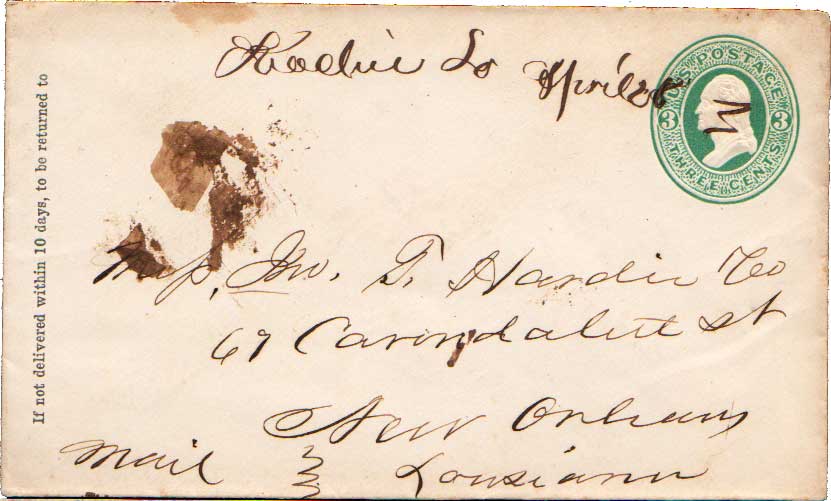 Rodin La April 28
U.S. POSTAGE
3 3
THREE CENTS
If not delivered within 10 days, to be returned to
Jno. T. Hardie & Co
67 Carondalett st
New Orleans
Mail Louisiana